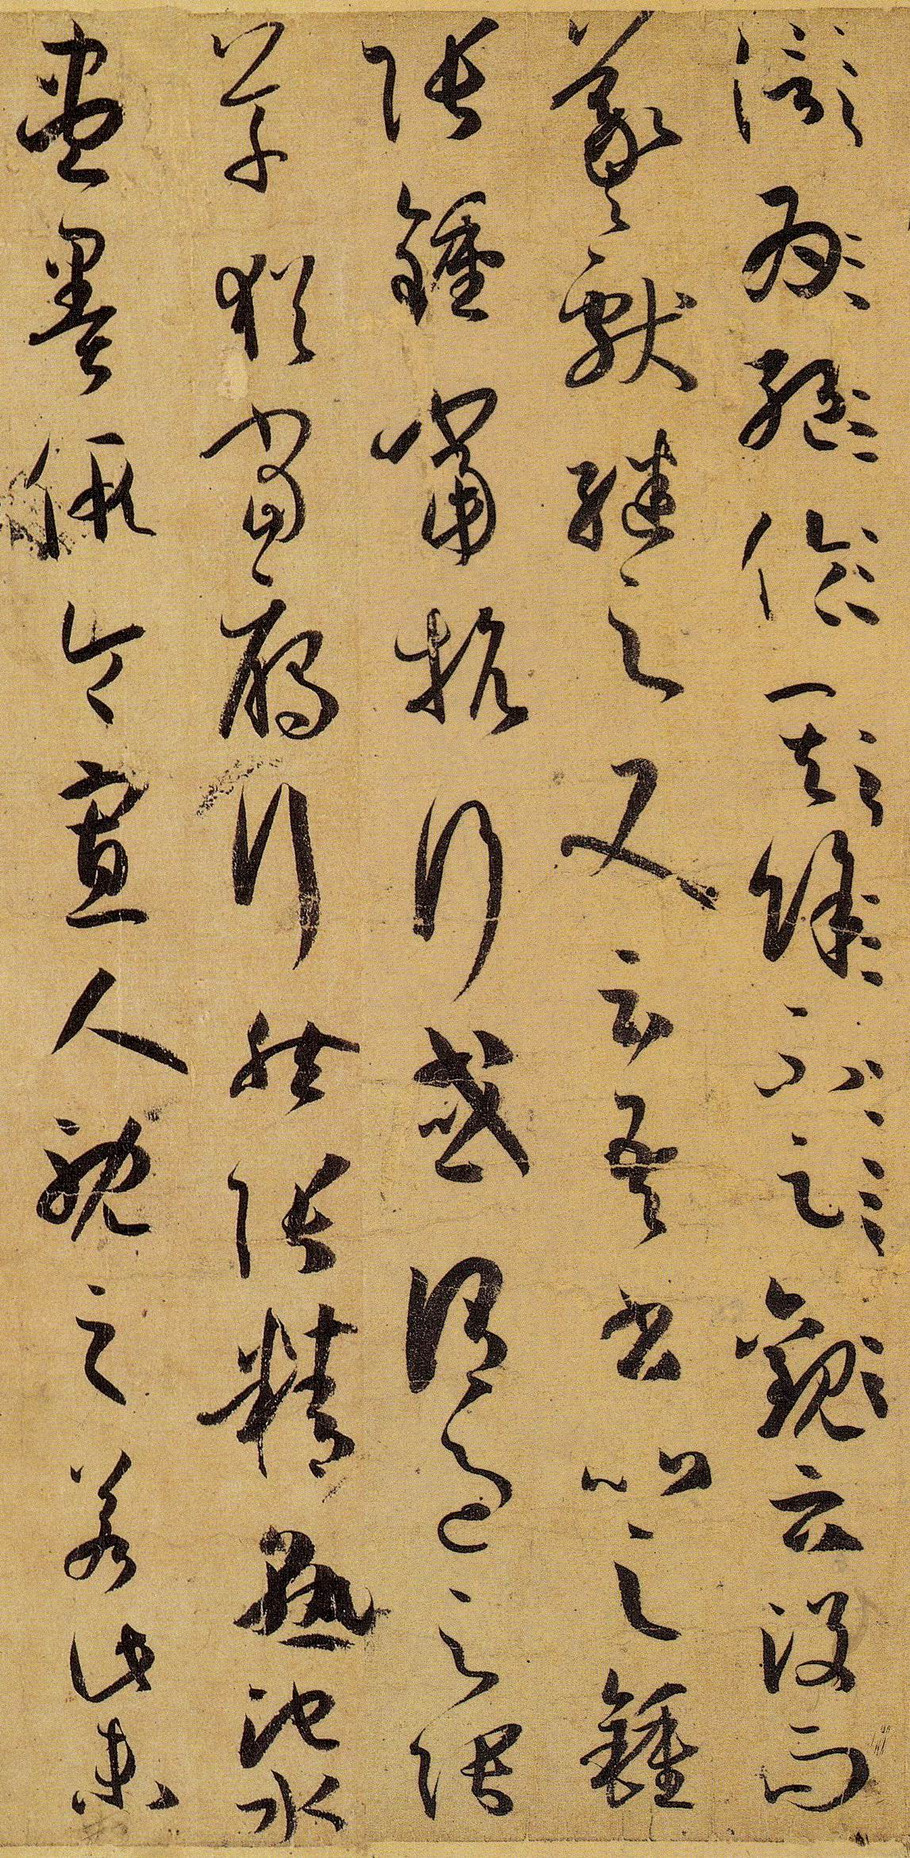 信為絕倫其餘不足觀云沒而
羲獻繼之又云吾書比之鍾
張鍾當抗行或謂過之張
草猶當雁行然張精熟池水
盡墨假令寡人耽之若此未